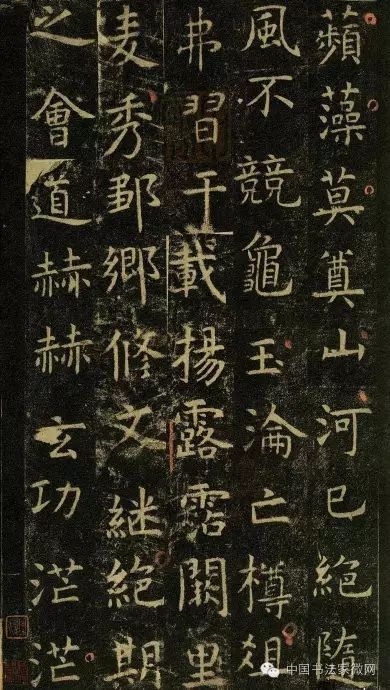 蘋藻莫奠山河已絕隋
風不競龜玉淪亡樽俎
弗習干載揚露霑闕里
麦秀鄒鄉修文継絕期
之會道赫赫玄功茫茫
中国书法家微网